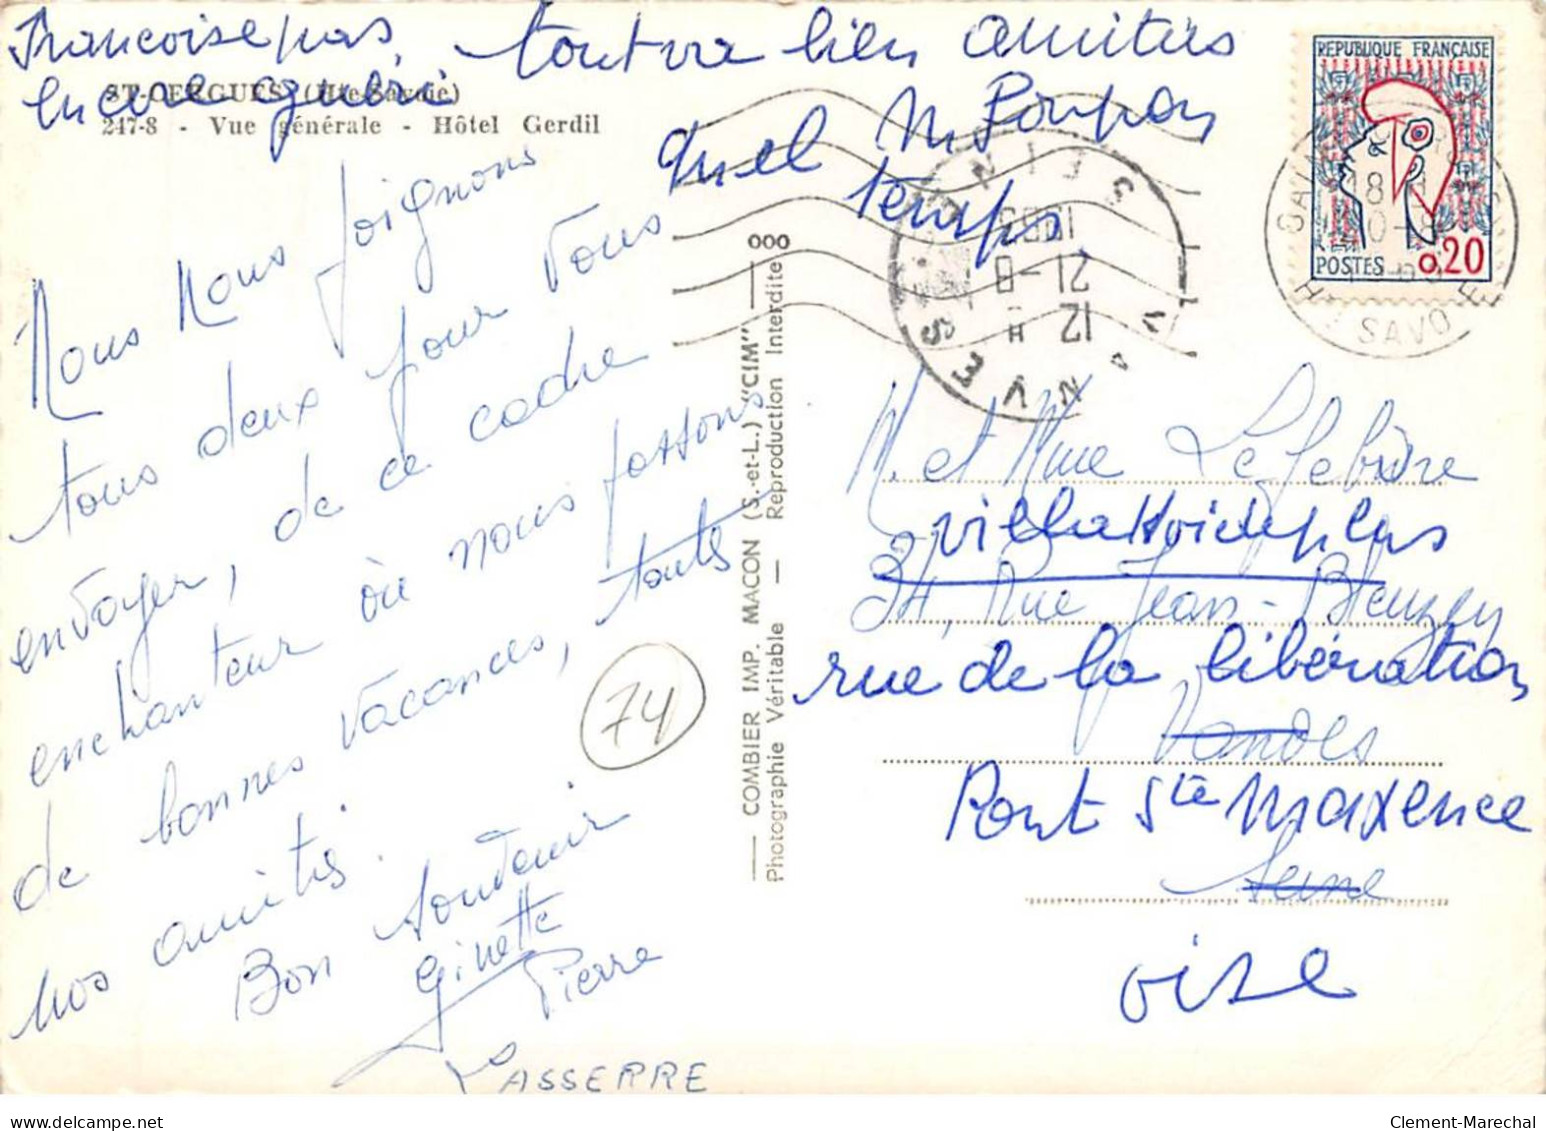 Francoise pas
encore guéri
tout va bien amitiés
M Poupon
quel temps
ST-CERGUES (Hte-Savoie)
247-8 - Vue générale - Hôtel Gerdil
Nous nous joignons
tous deux pour vous
envoyer, de ce cadre
enchanteur où nous passons
de bonnes vacances, toutes
nos amitiés.
Bon souvenir
Ginette
Pierre
LASSERRE
74
COMBIER IMP. MACON (S.-et-L.) "CIM"
Photographie Véritable — Reproduction Interdite
REPUBLIQUE FRANÇAISE
POSTES 0,20
VANVES
SEINE
12 H
21-8
1963
SAVOIE
M. et Mme Lefebvre
villa
34, Rue Jean-Bleuzen
rue de la libération
Vanves
Pont Ste Maxence
Seine
oise
Clement-Marechal